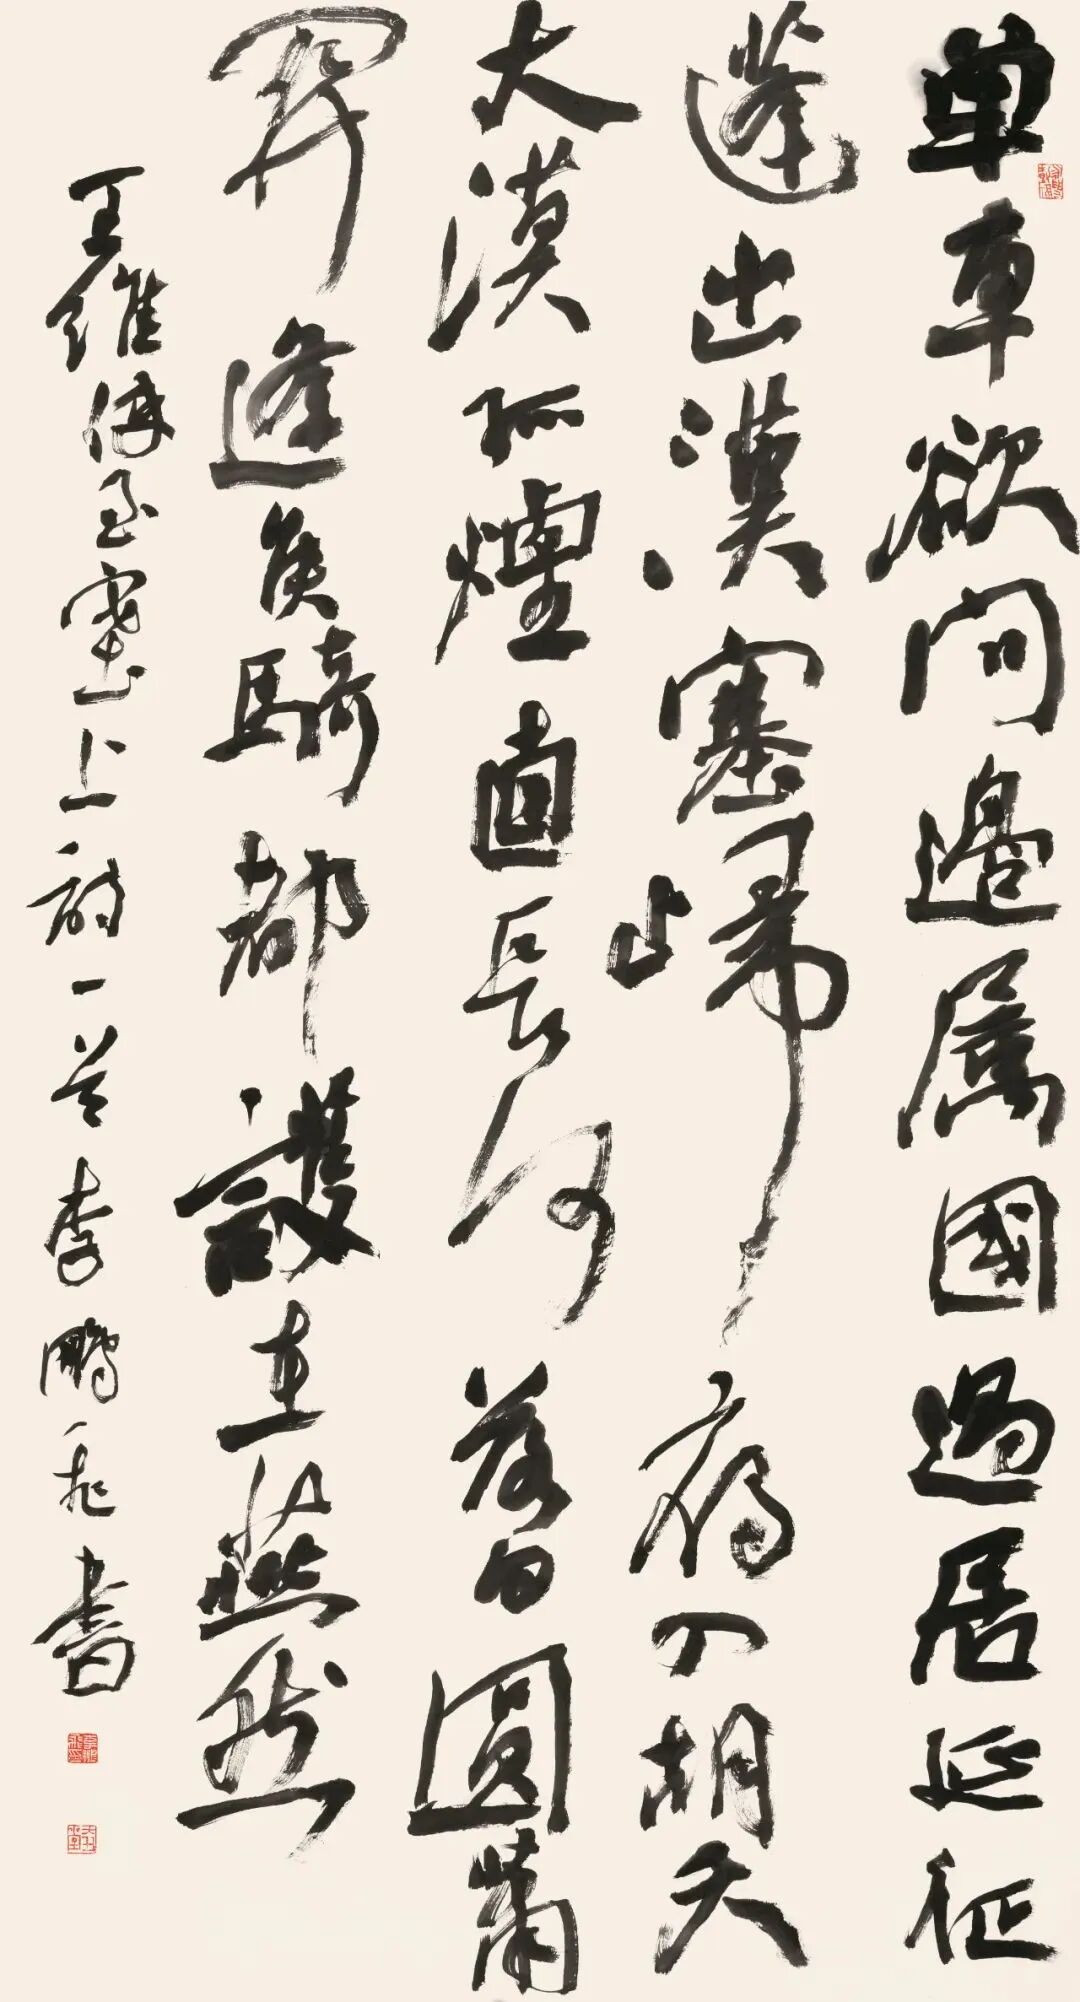 單車欲問邊屬國過居延征
蓬出漢塞歸雁入胡天
大漠孤煙直長河落日圓蕭
關逢候騎都護在燕然
王維使至塞上詩一首李鵬飛書